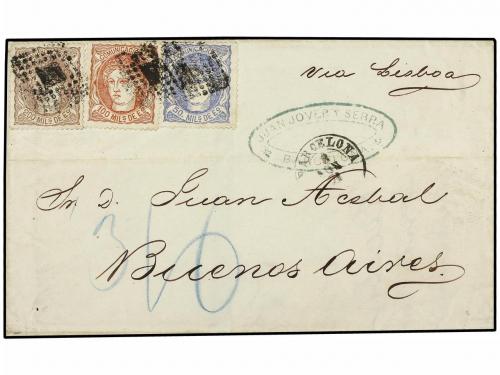 COMUNICACIONES COMUNICACIONES COMUNICACIONES
200 MILS. DE ESC. 100 MILS. DE ESC. 50 MILS. DE ESC.
Via Lisboa
JUAN JOVER Y SERRA
BARCELONA
Sr. D. Juan Acebal
Buenos Aires.